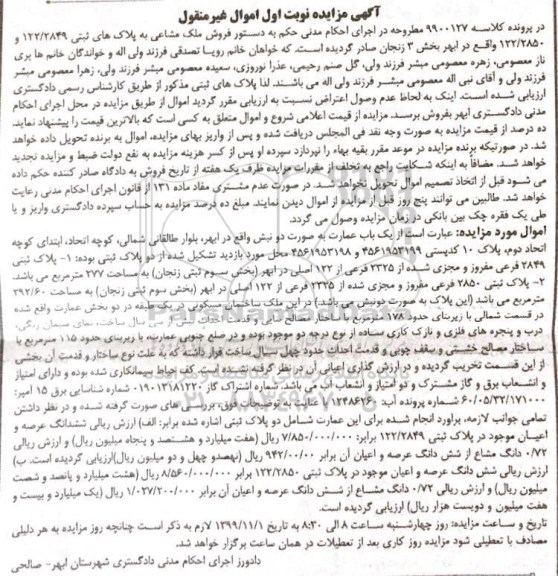 آگهی مزایده نوبت اول اموال غیرمنقول
در پرونده کلاسه ۹۹۰۰۱۲۷ مطروحه در اجرای احکام مدنی حکم به دستور فروش ملک مشاعی به پلاک های ثبتی ۱۲۲/۲۸۴۹ و
۱۲۲/۲۸۵۰ واقع در ابهر بخش ۳ زنجان صادر گردیده است. که خواهان خانم رویا تصدقی فرزند ولی اله و خواندگان خانم ها پری
ناز معصومی، زهره معصومی مبشر فرزند ولی، گل صنم رحیمی، عذرا نوروزی، سعیده معصومی مبشر فرزند ولی، زهرا معصومی مبشر
فرزند ولی و آقای نبی اله معصومی مبشر فرزند ولی اله می باشند. لذا پلاک های ثبتی مذکور از طریق کارشناس رسمی دادگستری
ارزیابی شده است. اینک به لحاظ عدم وصول اعتراض نسبت به ارزیابی مقرر گردید اموال از طریق مزایده در محل اجرای احکام
مدنی دادگستری ابهر بفروش برسد. مزایده از قیمت اعلامی شروع و اموال متعلق به کسی است که بالاترین قیمت را پیشنهاد نماید.
ده درصد از قیمت مزایده به صورت وجه نقد فی المجلس دریافت شده و پس از واریز بهای مزایده، اموال به برنده تحویل داده خواهد
شد. در صورتیکه برنده مزایده در موعد مقرر بقیه بهاء را نپردازد سپرده او پس از کسر هزینه مزایده به نفع دولت ضبط و مزایده تجدید
خواهد شد. مضافاً به اینکه شکایت راجع به تخلف از مقررات مزایده ظرف یک هفته از تاریخ فروش به دادگاه صادر کننده حکم داده
می شود قبل از اتخاذ تصمیم اموال تحویل نخواهد شد. در صورت عدم مشتری مفاد ماده ۱۳۱ از قانون اجرای احکام مدنی رعایت
خواهد شد. طالبین می توانند پنج روز قبل از مزایده از اموال دیدن نمایند. مبلغ ده درصد مزایده به حساب سپرده دادگستری واریز و یا
طی یک فقره چک بین بانکی در زمان مزایده وصول می گردد.
اموال مورد مزایده: عبارت است از یک باب عمارت به صورت دو نبش واقع در ابهر، بلوار طالقانی شمالی، کوچه اتحاد، ابتدای کوچه
اتحاد دوم، پلاک ۱۰ کدپستی ۴۵۶۱۹۵۳۱۹۹ و ۴۵۶۱۹۵۳۱۹۸ محل مورد بازدید تشکیل شده از دو پلاک ثبتی بوده: ۱- پلاک ثبتی
۲۸۴۹ فرعی مفروز و مجزی شده از ۲۳۲۵ فرعی از ۱۲۲ اصلی در ابهر (بخش سوم ثبتی زنجان) به مساحت ۲۷۷ مترمربع می باشد.
۲- پلاک ثبتی ۲۸۵۰ فرعی مفروز و مجزی شده از ۲۳۲۵ فرعی از ۱۲۲ اصلی در ابهر (بخش سوم ثبتی زنجان) به مساحت ۲۹۲/۶۰
مترمربع می باشد (این پلاک به صورت دونبش می باشد) در این ملک ساختمان مسکونی در یک طبقه در دو بخش عمارت واقع شده
در قسمت شمالی با زیربنای حدود ۱۷۸ مترمربع با ساختار مصالح بنایی و قدمت احداث بیش از سی سال ساخت، نمای سیمان رنگی،
درب و پنجره های فلزی و نازک کاری ساده از نوع درجه دو موجود بوده و در ضلع جنوبی عمارت، با زیربنای حدود ۱۱۵ مترمربع با
ساختار مصالح خشتی و سقف چوبی و قدمت احداث حدود چهل سال ساخت قرار داشته که به علت نوع ساختار و قدمت آن بخشی
از این قسمت تخریب گردیده و در ارزش گذاری اعیانی آن در نظر گرفته نشده است. کف حیاط سیمانکاری شده بوده و دارای امتیاز
و انشعاب برق و گاز مشترک و دو امتیاز و انشعاب آب می باشد. شماره اشتراک گاز ۰۱۹۰۱۳۱۸۱۲۲۰ شماره شناسایی برق ۱۵ آمپر:
۶۰/۰۵/۳۲/۱۷۱۰۰۰ شماره پرونده آب: ۱۲۴۸۶۲۶۰ با عنایت به توضیحات فوق، بررسی های صورت گرفته شده و در نظر داشتن
تمامی جوانب لازمه، برآورد انجام شده برای این عمارت شامل دو پلاک ثبتی اشاره شده برابر: الف) ارزش ریالی ششدانگ عرصه و
اعیان موجود در پلاک ثبتی ۱۲۲/۲۸۴۹ برابر: ۷/۸۵۰/۰۰۰/۰۰۰ ریال (هفت میلیارد و هشتصد و پنجاه میلیون ریال) و ارزش ریالی
۰/۷۲ دانگ مشاع از شش دانگ عرصه و اعیان آن برابر ۹۴۲/۰۰/۰۰ ریال (نهصدو چهل و دو میلیون ریال)ارزیابی گردیده است. ب)
ارزش ریالی شش دانگ عرصه و اعیان موجود در پلاک ثبتی ۱۲۲/۲۸۵۰ برابر ۸/۵۶۰/۰۰۰/۰۰۰ ریال (هشت میلیارد و پانصد و شصت
میلیون ریال) و ارزش ریالی ۰/۷۲ دانگ مشاع از شش دانگ عرصه و اعیان آن برابر ۱/۰۲۷/۲۰۰/۰۰۰ ریال (یک میلیارد و بیست و
هفت میلیون و دویست هزار ریال) ارزیابی گردیده است.
تاریخ و ساعت مزایده: روز چهارشنبه ساعت ۸ الی ۸:۳۰ به تاریخ ۱۳۹۹/۱۱/۱ لازم به ذکر است چنانچه روز مزایده به هر دلیلی
مصادف با تعطیلی شود مزایده روز کاری بعد از تعطیلات در همان ساعت برگزار خواهد شد.
دادورز اجرای احکام مدنی دادگستری شهرستان ابهر- صالحی